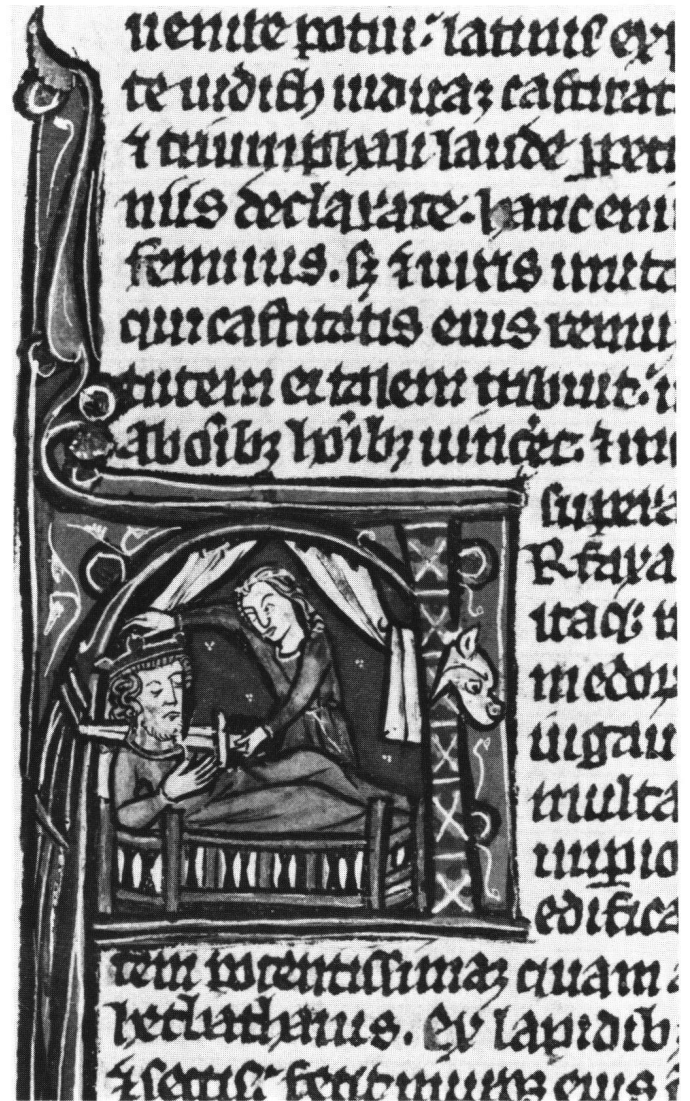 uenire potui: latinis exp
te iudith uiduaz castitat
⁊ triumphali laude perti
niis declarate. hanc eni
feminis. sꝫ ⁊ uiris imita
qui castitatis eius remu
tutem ei talem tribuit. i
ab oībꝫ hōībꝫ uinceret. ⁊ in
supera
Rfaxa
itaqꝫ
medor
iugau
multa
imꝑio
edifica
tem potentissimaz quam a
hecbathanis. Ex lapidib
⁊ sectis: fecit muros eius i